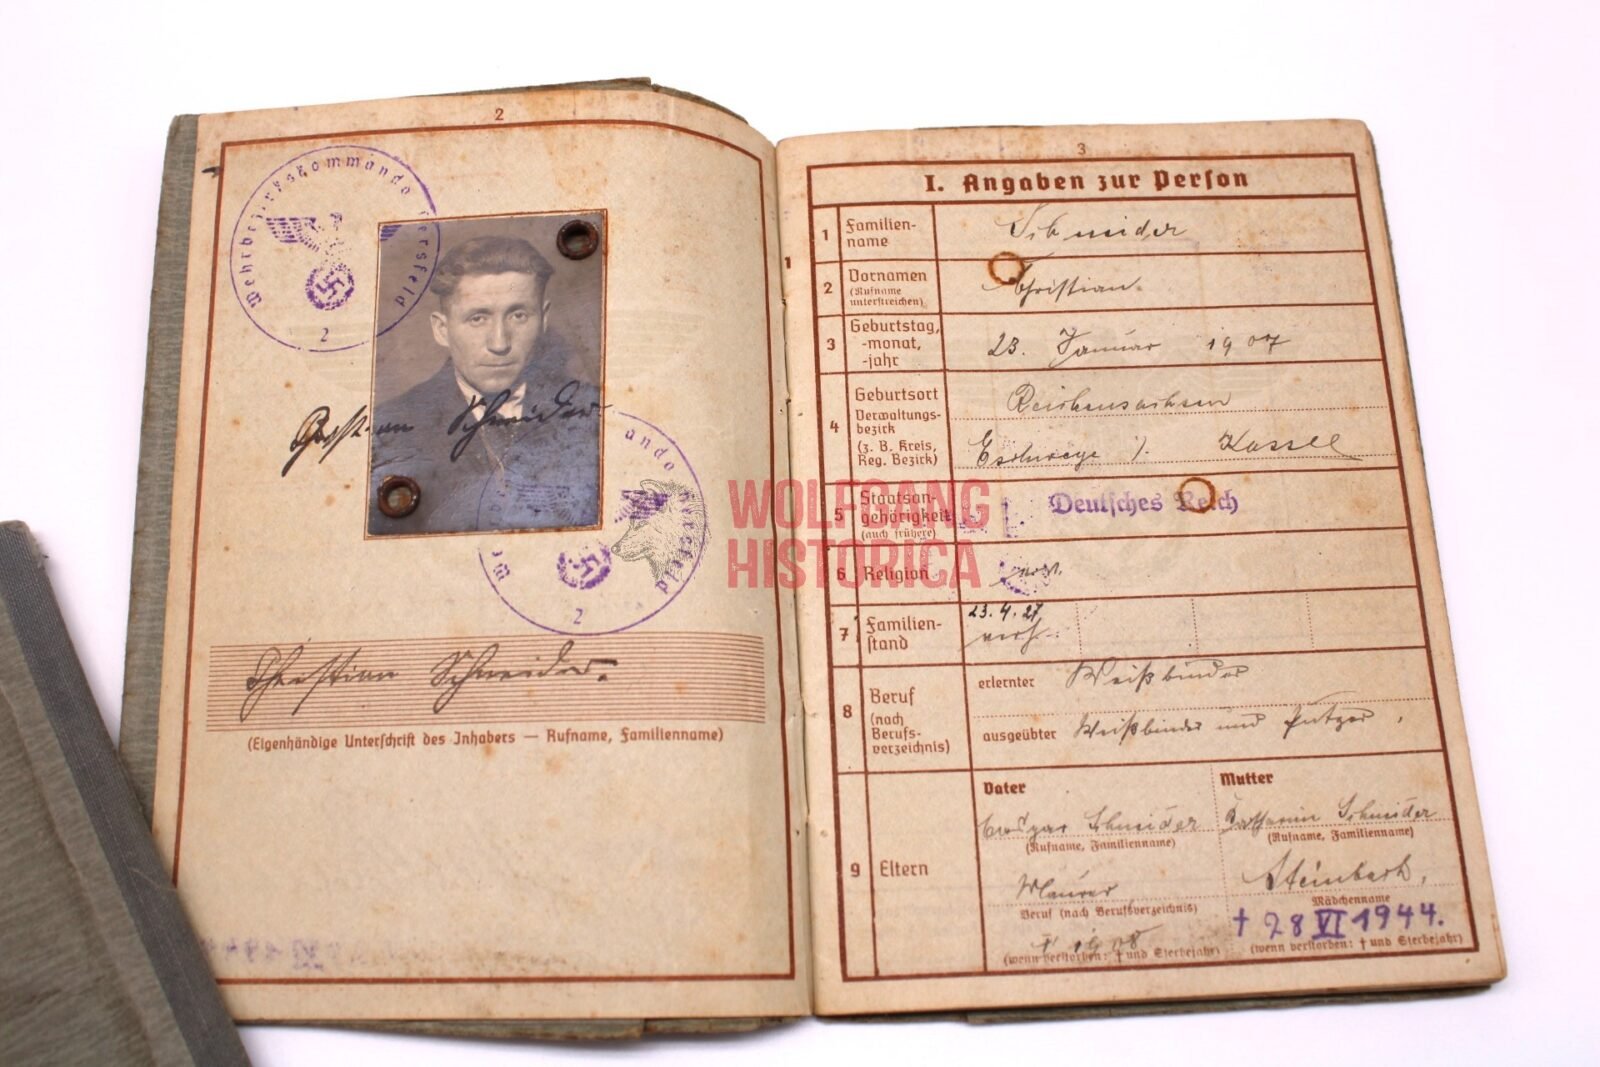 2
Wehrbezirkskommando Hersfeld
2
Christian Schneider
ando Hersfeld
2
Christian Schneider.
(Eigenhändige Unterschrift des Inhabers — Rufname, Familienname)
WOLFGANG
HISTORICA
3
I. Angaben zur Person
1 Familien-
name
Schneider
2 Vornamen
(Rufname
unterstreichen)
Christian.
3 Geburtstag,
-monat,
-jahr
23. Januar 1907
4 Geburtsort
Verwaltungs-
bezirk
(z. B. Kreis,
Reg. Bezirk)
Reichensachsen
Eschwege Kassel
5 Staatsan-
gehörigkeit
(auch frühere)
Deutsches Reich
6 Religion
7 Familien-
stand
23.4.27
verh.
8 Beruf
(nach
Berufs-
verzeichnis)
erlernter Weißbinder
ausgeübter Weißbinder und Putzer,
9 Eltern
Vater
Schneider
(Rufname, Familienname)
Maurer
Beruf (nach Berufsverzeichnis)
† 1908
(wenn verstorben: † und Sterbejahr)
Mutter
Schneider
(Rufname, Familienname)
Steinbach,
Mädchenname
† 28 VI 1944.
(wenn verstorben: † und Sterbejahr)